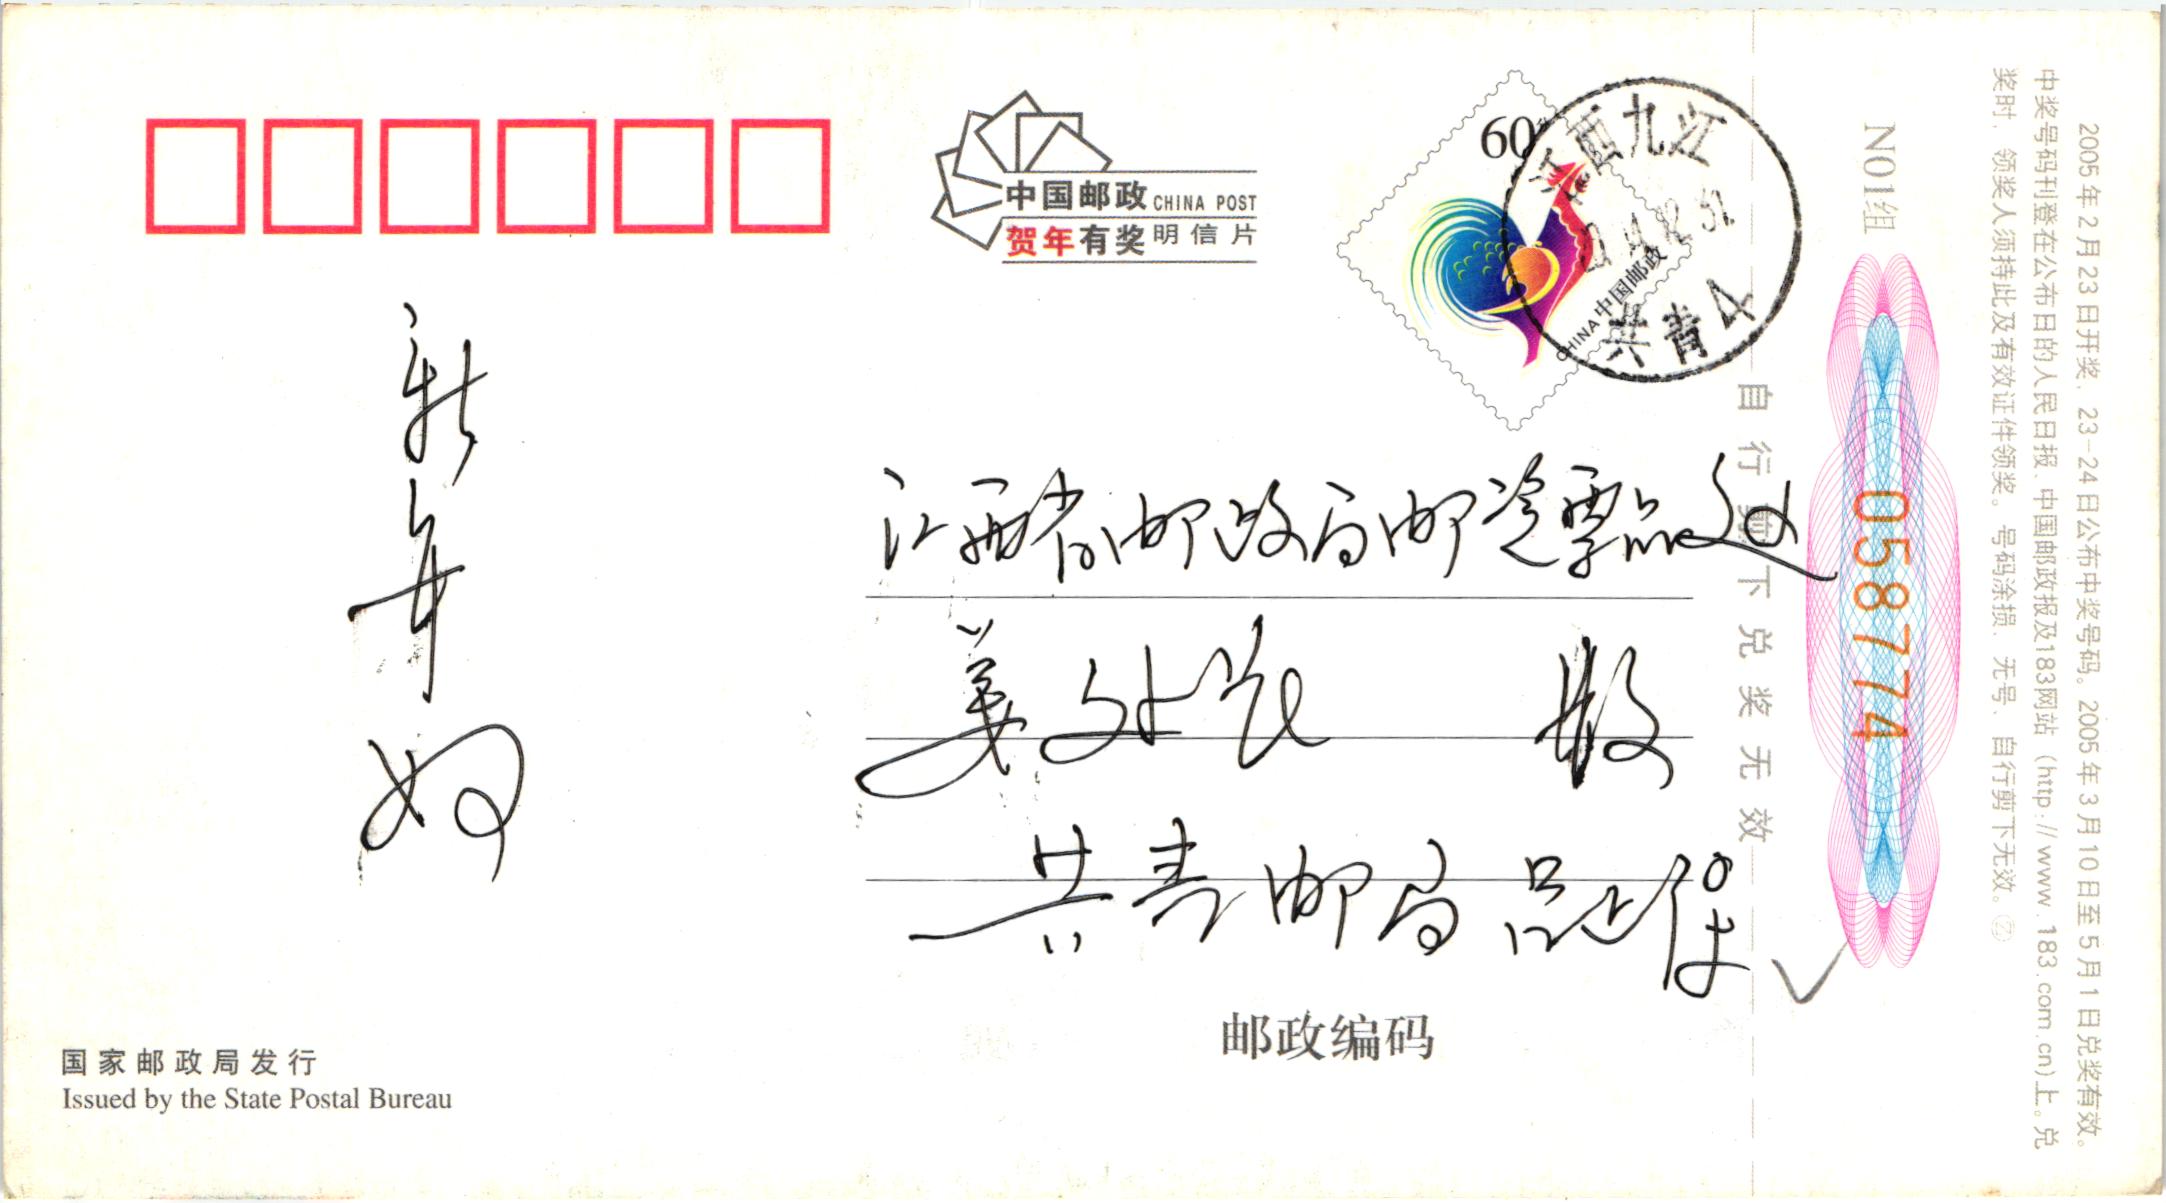 中国邮政 CHINA POST
贺年有奖明信片
60分
CHINA 中国邮政
江西九江
共青4
新年好
江西省邮政局邮资票品处
姜处长 收
共青邮局
邮政编码
国家邮政局发行
Issued by the State Postal Bureau
自行剪下兑奖无效
N01组
058774
2005年2月23日开奻、23-24日公布中奖号码。2005年3月10日至5月1日兑奖有效。
中奖号码刊登在公布日的人民日报、中国邮政报及183网站（http://www.183.com.cn)上。兑
奖时，领奖人须持此及有效证件领奖。号码涂损、无号、自行剪下无效。㊁